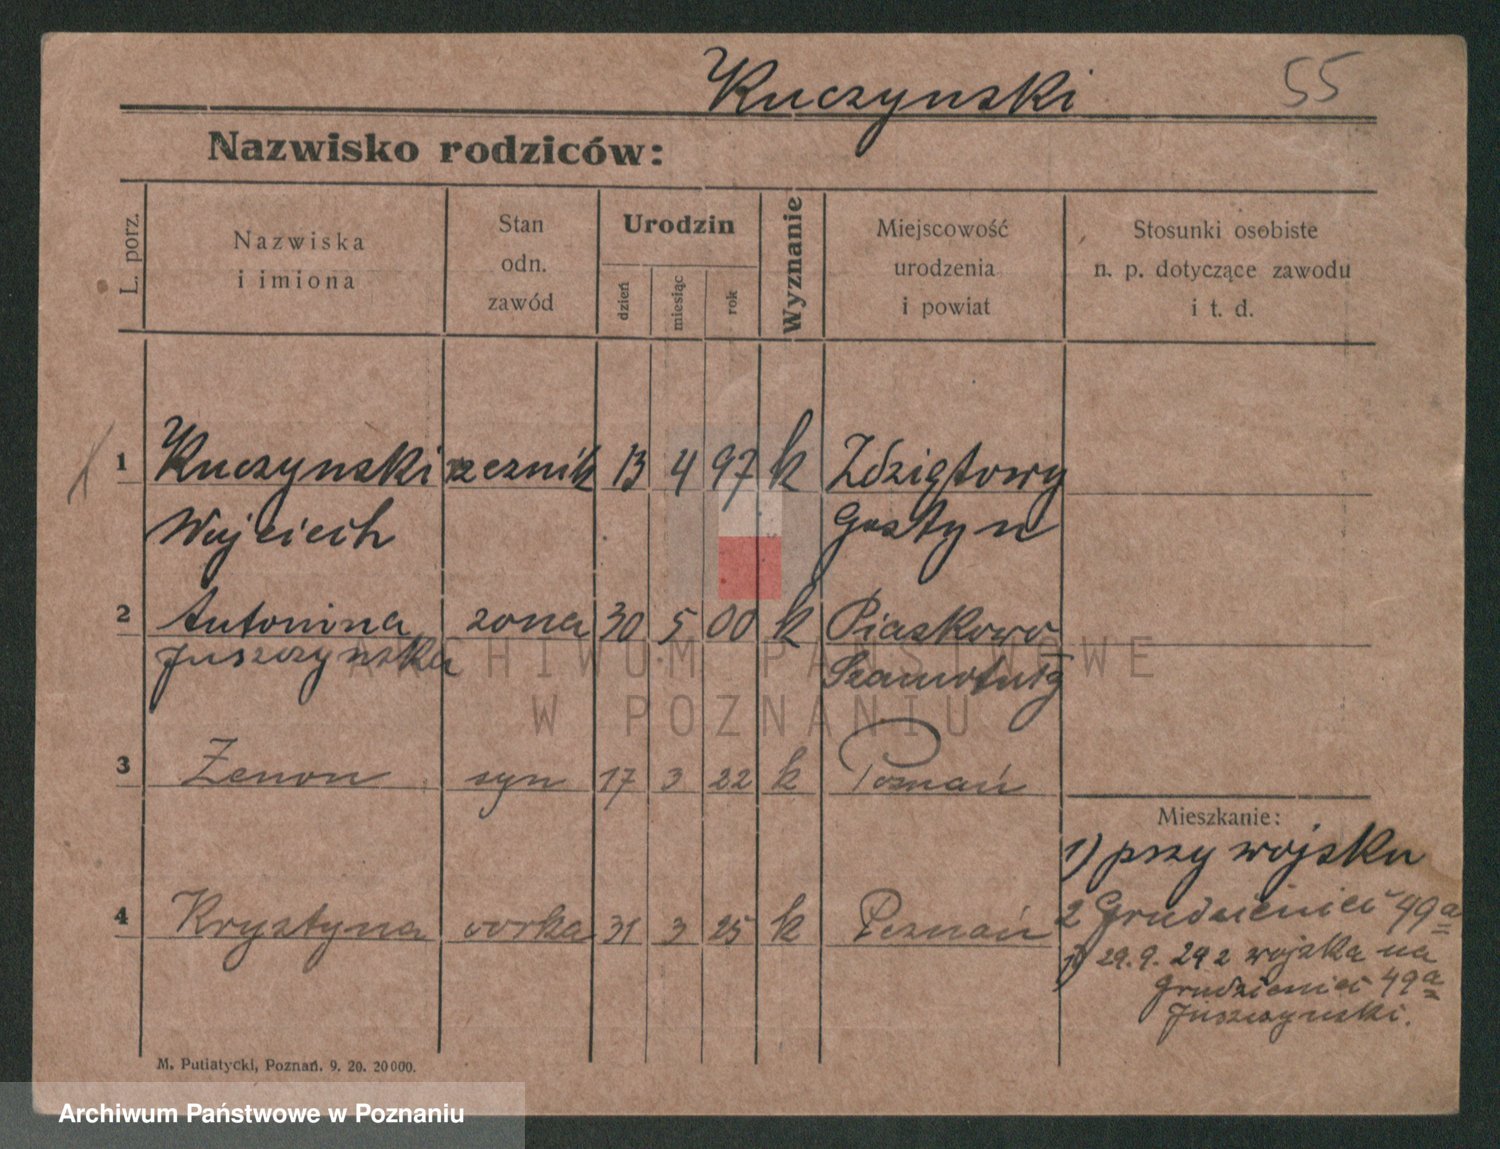 Kuczynski 55
Nazwisko rodziców:
L. porz.
Nazwiska i imiona
Stan odn. zawód
Urodzin
dzień miesiąc rok
Wyznanie
Miejscowość urodzenia i powiat
Stosunki osobiste n. p. dotyczące zawodu i t. d.
1 Kuczynski rzeznik 13 4 97 k
Wojciech Gostyn
2 Antonina zona 30 5 00 k Piaskowo
Juszczynska Szamotuły
3 Zenon syn 17 3 22 k Poznań
4 Krystyna corka 31 3 25 k Poznań
Mieszkanie:
1) przy wojsku
2 Grudzieniec 49a
1) 29.9.29 z wojska na
Grudzieniec 49a
Juszczynski.
M. Putiatycki, Poznań. 9. 20. 20000.
ARCHIWUM PAŃSTWOWE
W POZNANIU
Archiwum Państwowe w Poznaniu